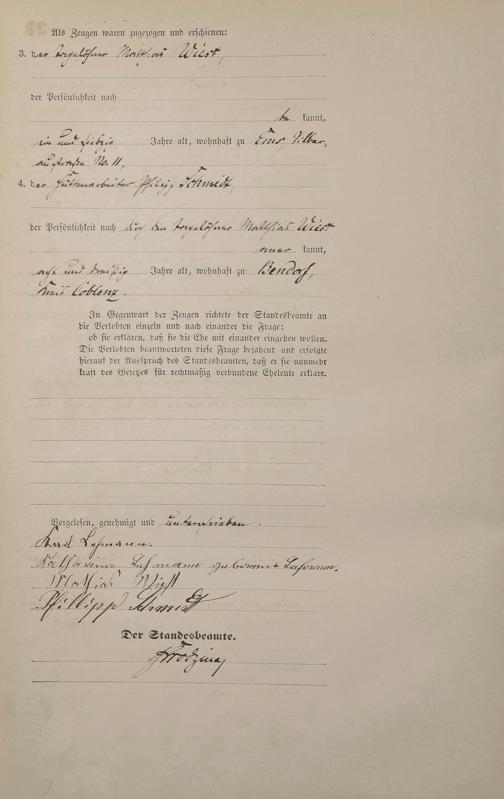 Als Zeugen waren zugezogen und erschienen:
3. der Tagelöhner Mathias Wiest,
der Persönlichkeit nach
be kannt,
ein und siebzig Jahre alt, wohnhaft zu Ems, Silber-
austraße No. 11,
4. der Hüttenarbeiter Philipp Schmidt,
der Persönlichkeit nach durch den Tagelöhner Mathias Wiest
aner kannt,
acht und dreißig Jahre alt, wohnhaft zu Bendorf,
Kreis Coblenz.
In Gegenwart der Zeugen richtete der Standesbeamte an
die Verlobten einzeln und nach einander die Frage:
ob sie erklären, daß sie die Ehe mit einander eingehen wollen.
Die Verlobten beantworteten diese Frage bejahend und erfolgte
hierauf der Ausspruch des Standesbeamten, daß er sie nunmehr
kraft des Gesetzes für rechtmäßig verbundene Eheleute erkläre.
Vorgelesen, genehmigt und unterschrieben.
Karl Lehmann.
Katharina Lehmann geborene
Mathias Wist
Phillipp Schmidt
Der Standesbeamte.